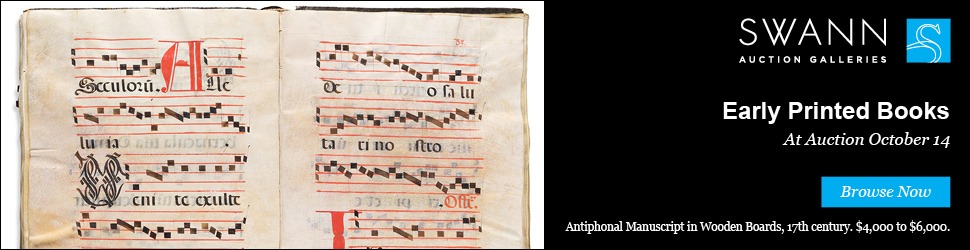 Seculorũ. A lle
luia
Veni te exulte
de o sa lu
ta ri no stro
SWANN
AUCTION GALLERIES
S
Early Printed Books
At Auction October 14
Browse Now
Antiphonal Manuscript in Wooden Boards, 17th century. $4,000 to $6,000.